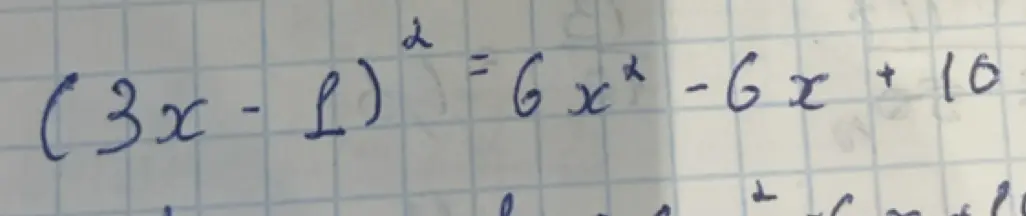 (3x - 1)² = 6x² - 6x + 10